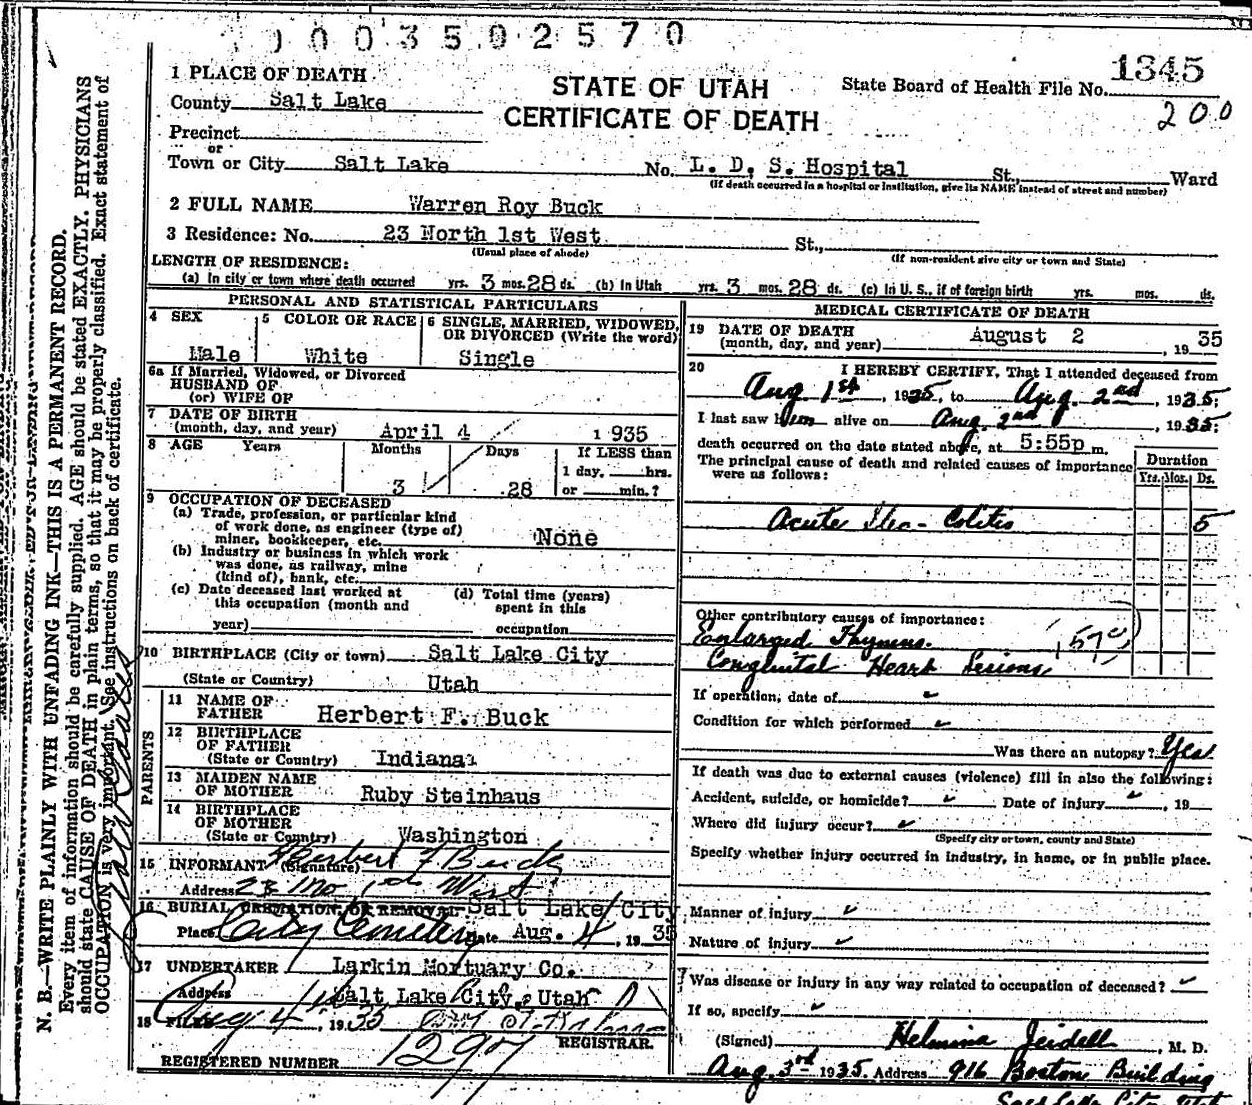 0003502570
1345
200
STATE OF UTAH
CERTIFICATE OF DEATH
State Board of Health File No.
1 PLACE OF DEATH
County Salt Lake
Precinct
or
Town or City Salt Lake No. L. D. S. Hospital St., Ward
(If death occurred in a hospital or institution, give its NAME instead of street and number)
2 FULL NAME Warren Roy Buck
3 Residence: No. 23 North 1st West St.,
(Usual place of abode) (If non-resident give city or town and State)
LENGTH OF RESIDENCE:
(a) In city or town where death occurred yrs. 3 mos. 28 ds. (b) In Utah yrs. 3 mos. 28 ds. (c) In U. S., if of foreign birth yrs. mos. ds.
PERSONAL AND STATISTICAL PARTICULARS
4 SEX
Male
5 COLOR OR RACE
White
6 SINGLE, MARRIED, WIDOWED,
OR DIVORCED (Write the word)
Single
6a If Married, Widowed, or Divorced
HUSBAND OF
(or) WIFE OF
7 DATE OF BIRTH
(month, day, and year) April 4 1935
8 AGE Years Months Days If LESS than
1 day, hrs.
3 28 or min.?
9 OCCUPATION OF DECEASED
(a) Trade, profession, or particular kind
of work done, as engineer (type of)
miner, bookkeeper, etc. None
(b) Industry or business in which work
was done, as railway, mine
(kind of), bank, etc.
(c) Date deceased last worked at
this occupation (month and
year)
(d) Total time (years)
spent in this
occupation
10 BIRTHPLACE (City or town) Salt Lake City
(State or Country) Utah
PARENTS
11 NAME OF
FATHER Herbert F. Buck
12 BIRTHPLACE
OF FATHER
(State or Country) Indiana
13 MAIDEN NAME
OF MOTHER Ruby Steinhaus
14 BIRTHPLACE
OF MOTHER
(State or Country) Washington
15 INFORMANT (Signature) Herbert F Buck
Address 23 No 1st West
16 BURIAL CREMATION, OR REMOVAL Salt Lake City
Place City Cemetery Date Aug. 4, 1935
17 UNDERTAKER Larkin Mortuary Co.
Address Salt Lake City, Utah
18 FILED Aug 4, 1935
REGISTRAR.
REGISTERED NUMBER 1297
MEDICAL CERTIFICATE OF DEATH
19 DATE OF DEATH
(month, day, and year) August 2, 1935
20 I HEREBY CERTIFY, That I attended deceased from
Aug 1st, 1935, to Aug. 2nd, 1935;
I last saw him alive on Aug. 2nd, 1935;
death occurred on the date stated above, at 5:55p m.
The principal cause of death and related causes of importance
were as follows:
Duration
Yrs. Mos. Ds.
Acute Ileo-Colitis 5
Other contributory causes of importance:
Enlarged Thymus.
Congenital Heart Lesions
If operation, date of
Condition for which performed
Was there an autopsy? Yes
If death was due to external causes (violence) fill in also the following:
Accident, suicide, or homicide? Date of injury, 19
Where did injury occur?
(Specify city or town, county and State)
Specify whether injury occurred in industry, in home, or in public place.
Manner of injury
Nature of injury
Was disease or injury in any way related to occupation of deceased?
If so, specify
(Signed) Helmina Jeidell, M. D.
Aug. 3rd 1935. Address 916 Boston Building
Salt Lake City, Utah
N. B.—WRITE PLAINLY WITH UNFADING INK—THIS IS A PERMANENT RECORD.
Every item of information should be carefully supplied. AGE should be stated EXACTLY. PHYSICIANS
should state CAUSE OF DEATH in plain terms, so that it may be properly classified. Exact statement of
OCCUPATION is very important. See instructions on back of certificate.